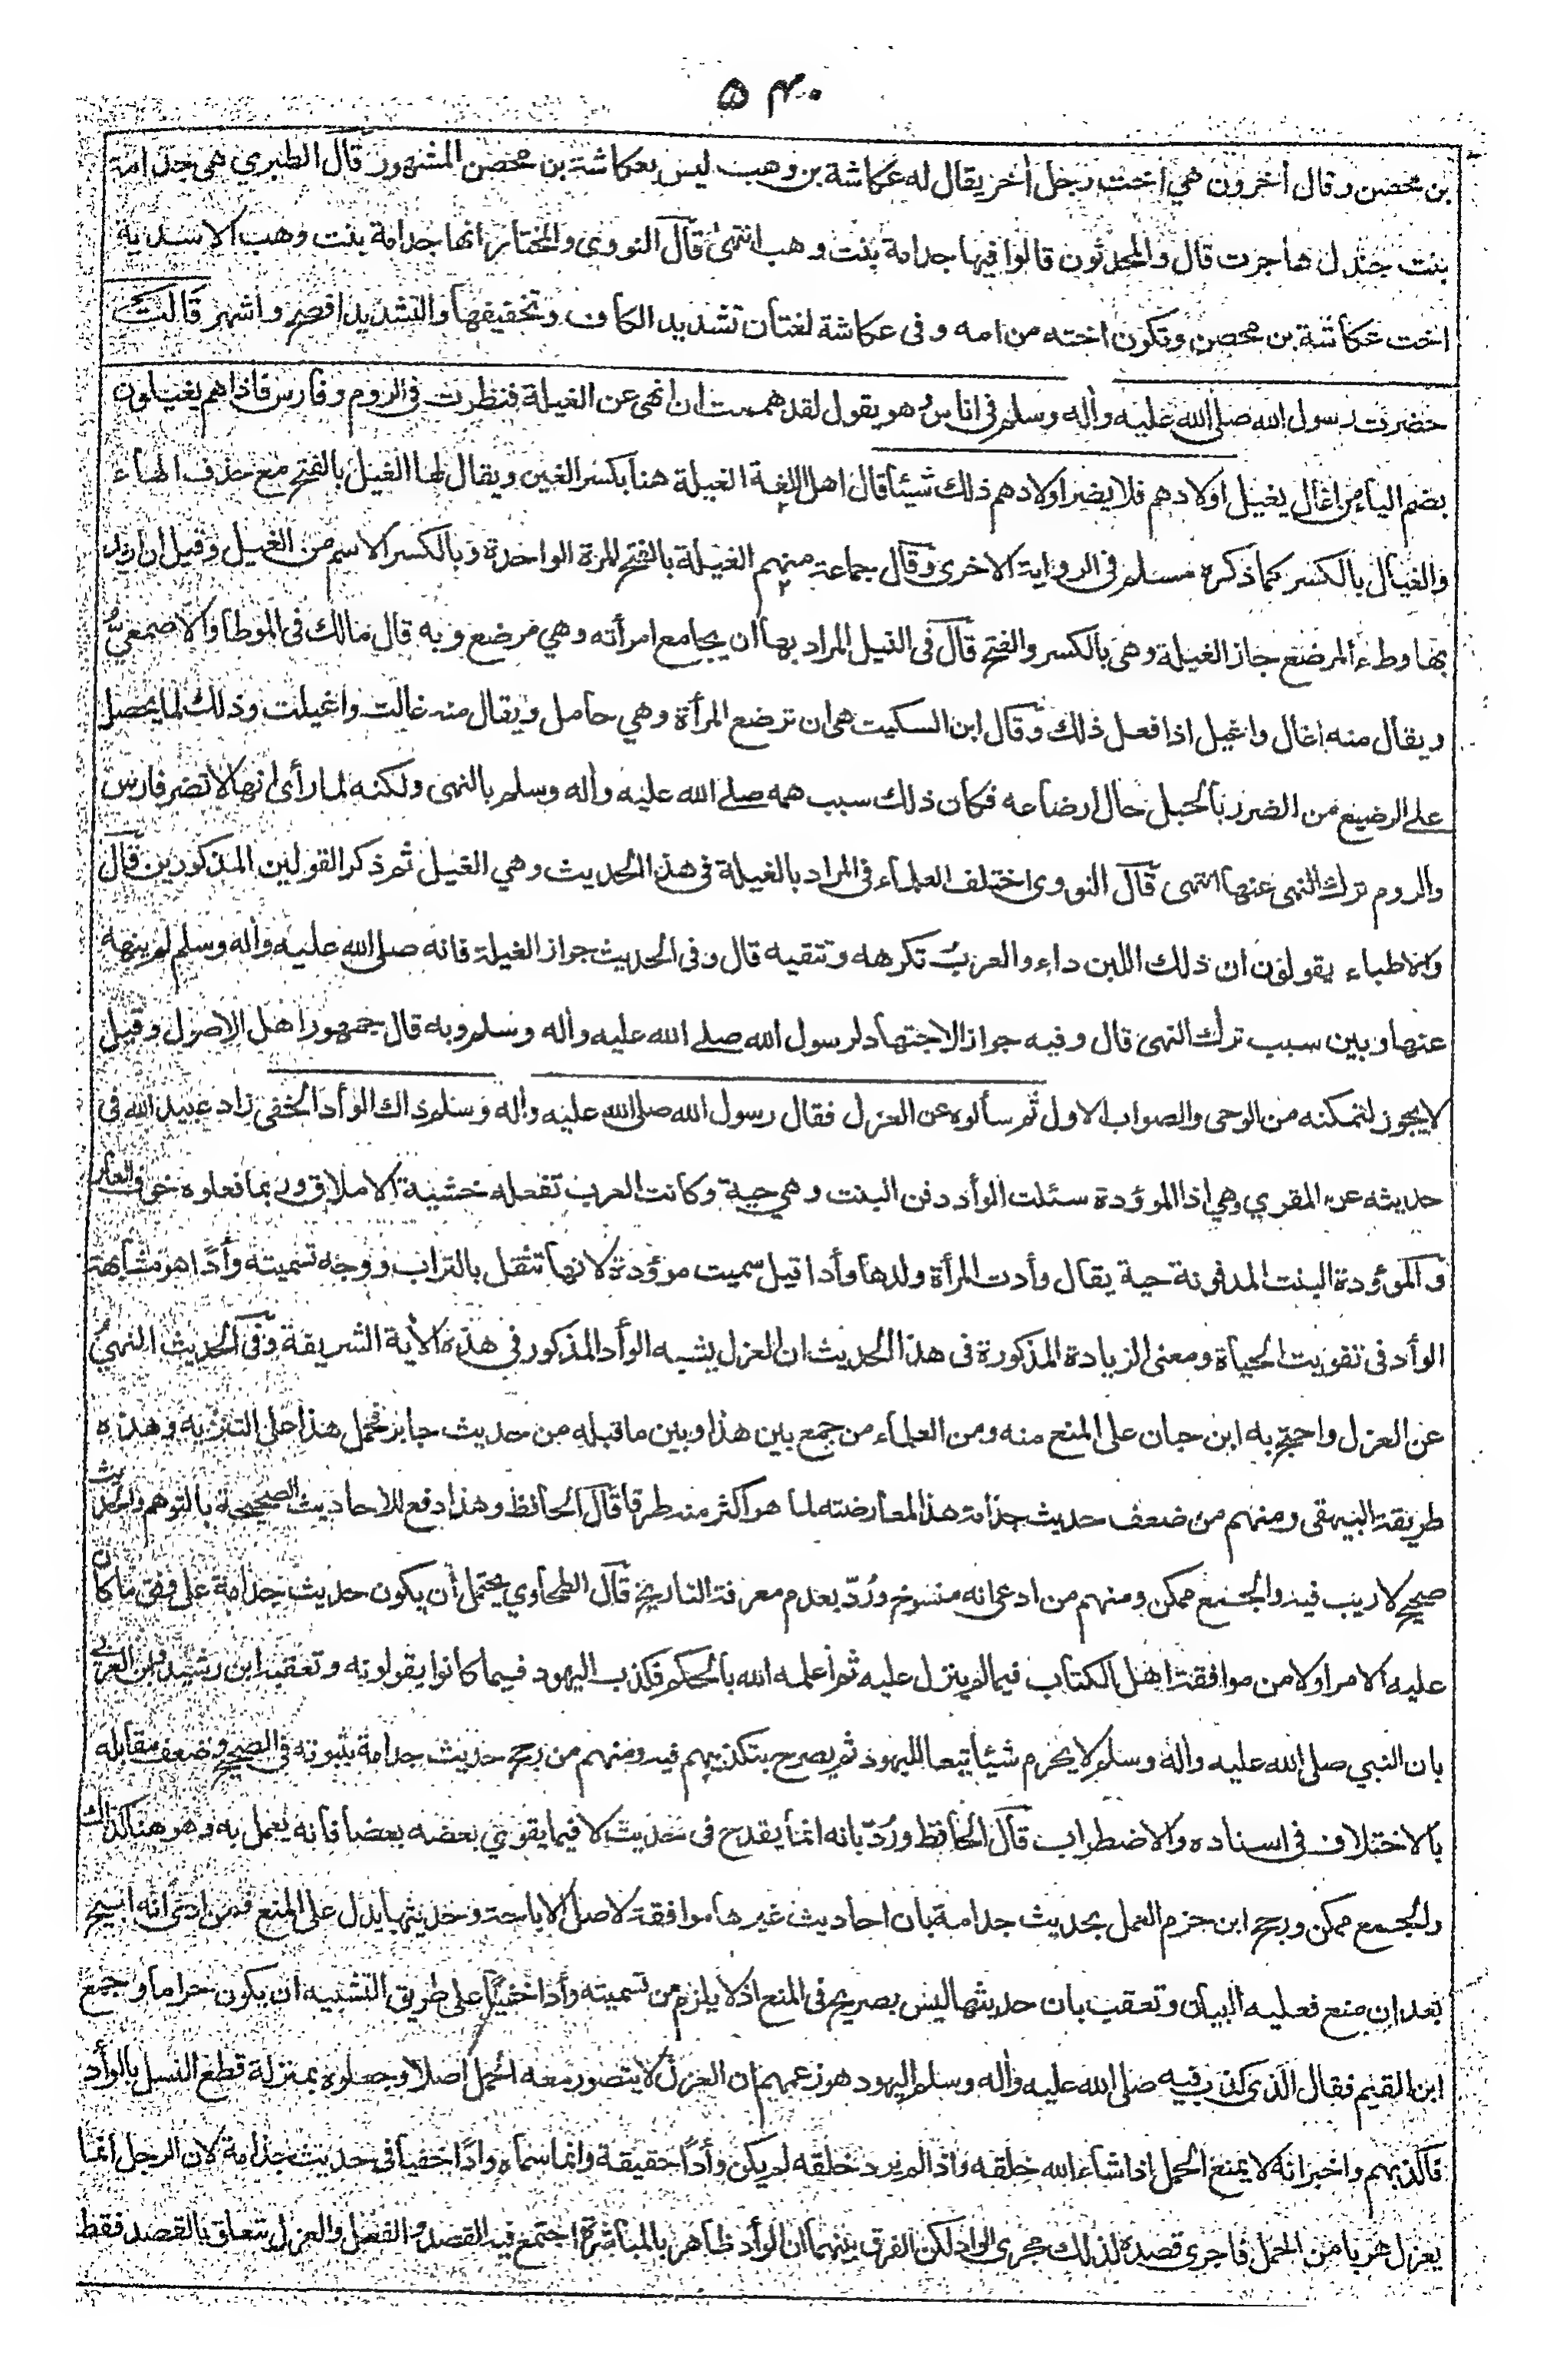 ۵۴۰
بن محصن وقال أخرون هي اخت رجل أخر يقال له عكاشة بن وهب ليس بعكاشة بن محصن المشهور قال الطبري هي جدامة
بنت جندل هاجرت قال والمحدثون قالوا فيها جدامة بنت وهب انتهى قال النووى والمختار انها جدامة بنت وهب الاسدية
اخت عكاشة بن محصن وتكون اخته من امه وفى عكاشة لغتان تشديد الكاف وتخفيفها والتشديد افصح واشهر قالت
حضرت رسول الله صلى الله عليه وأله وسلم فى اناس وهو يقول لقد هممت ان انهى عن الغيلة فنظرت فى الروم وفارس فاذا هم يغيلون
بضم الياء من اغال يغيل اولادهم فلا يضر اولادهم ذلك شيئا قال اهل اللغة الغيلة هنا بكسر الغين ويقال لها الغيل بالفتح مع حذف الهاء
والغيال بالكسر كما ذكره مسلم فى الرواية الاخرى وقال جماعة منهم الغيلة بالفتح للمرة الواحدة وبالكسر الاسم من الغيل وقيل ان اريد
بها وطء المرضع جاز الغيلة وهى بالكسر والفتح قال فى النيل المراد بها ان يجامع امرأته وهي مرضع وبه قال مالك فى الموطا والاصمعيّ
ويقال منه اغال واغيل اذا فعل ذلك وقال ابن السكيت هى ان ترضع المرأة وهي حامل ويقال منه غالت واغيلت وذلك لما يحصل
على الرضيع من الضرر بالحبل حال ارضاعه فكان ذلك سبب همه صلى الله عليه وأله وسلم بالنهى ولكنه لما رأى انها لا تضر فارس
والروم ترك النهى عنها انتهى قال النووى اختلف العلماء فى المراد بالغيلة فى هذا الحديث وهي الغيل ثم ذكر القولين المذكورين قال
والاطباء يقولون ان ذلك اللبن داء والعرب تكرهه وتتقيه قال وفى الحديث جواز الغيلة فانه صلى الله عليه وأله وسلم لم ينه
عنها وبين سبب ترك النهى قال وفيه جواز الاجتهاد لرسول الله صلى الله عليه وأله وسلم وبه قال جمهور اهل الاصول وقيل
لا يجوز لتمكنه من الوحى والصواب الاول ثم سألوه عن العزل فقال رسول الله صلى الله عليه وأله وسلم ذاك الوأد الخفى زاد عبيد الله فى
حديثه عن المقري وهي اذا الموؤدة سئلت الوأد دفن البنت وهي حية وكانت العرب تفعله خشية الاملاق وربما فعلوه خوف العار
والموؤدة البنت المدفونة حية يقال وأدت المرأة ولدها وأدا قيل سميت موؤدة لانها تثقل بالتراب ووجه تسميته وأدًا هو مشابهة
الوأد فى تفويت الحياة ومعنى الزيادة المذكورة فى هذا الحديث ان العزل يشبه الوأد المذكور فى هذه الأية الشريفة وفى الحديث النهي
عن العزل واحتج به ابن حبان على المنع منه ومن العلماء من جمع بين هذا وبين ما قبله من حديث جابر فحمل هذا على التنزيه وهذه
طريقة البيهقى ومنهم من ضعف حديث جذامة هذا لمعارضته لما هو اكثر منه طرقا قال الحافظ وهذا دفع للاحاديث الصحيحة بالتوهم والحديث
صحيح لا ريب فيه والجمع ممكن ومنهم من ادعى انه منسوخ ورُدّ بعدم معرفة التاريخ قال الطحاوي يحتمل أن يكون حديث جدامة على وفق ما كان
عليه الامر اولا من موافقة اهل الكتاب فيما لم ينزل عليه ثم اعلمه الله بالحكم فكذب اليهود فيما كانوا يقولونه وتعقبه ابن رشيد وابن العربي
بان النبي صلى الله عليه وأله وسلم لا يحرم شيئا تبعا لليهود ثم يصرح بتكذيبهم فيه ومنهم من رجح حديث جدامة بثبوته فى الصحيح وضعف مقابله
بالاختلاف فى اسناده والاضطراب قال الحافظ ورُدّ بانه انما يقدح فى حديث لا فيما يقوي بعضه بعضا فانه يعمل به وهو هنا كذلك
والجمع ممكن ورجح ابن حزم العمل بحديث جدامة بان احاديث غيرها موافقة لاصل الاباحة وحديثها يدل على المنع فمن ادعى انه ابيح
بعد ان منع فعليه البيان وتعقب بان حديثها ليس بصريح فى المنع اذ لا يلزم من تسميته وأدا خفيًّا على طريق التشبيه ان يكون حراما وجمع
ابن القيم فقال الذى كذب فيه صلى الله عليه وأله وسلم اليهود هو زعمهم ان العزل لا يتصور معه الحمل اصلا وجعلوه بمنزلة قطع النسل بالوأد
فأكذبهم واخبر انه لا يمنع الحمل اذا شاء الله خلقه واذا لم يرد خلقه لم يكن وأدًا حقيقة وانما سماه وادًا خفيا فى حديث جذامة لان الرجل انما
يعزل هربا من الحمل فاجرى قصده لذلك مجرى الوأد لكن الفرق بينهما ان الوأد ظاهر بالمباشرة اجتمع فيه القصد والفعل والعزل يتعلق بالقصد فقط